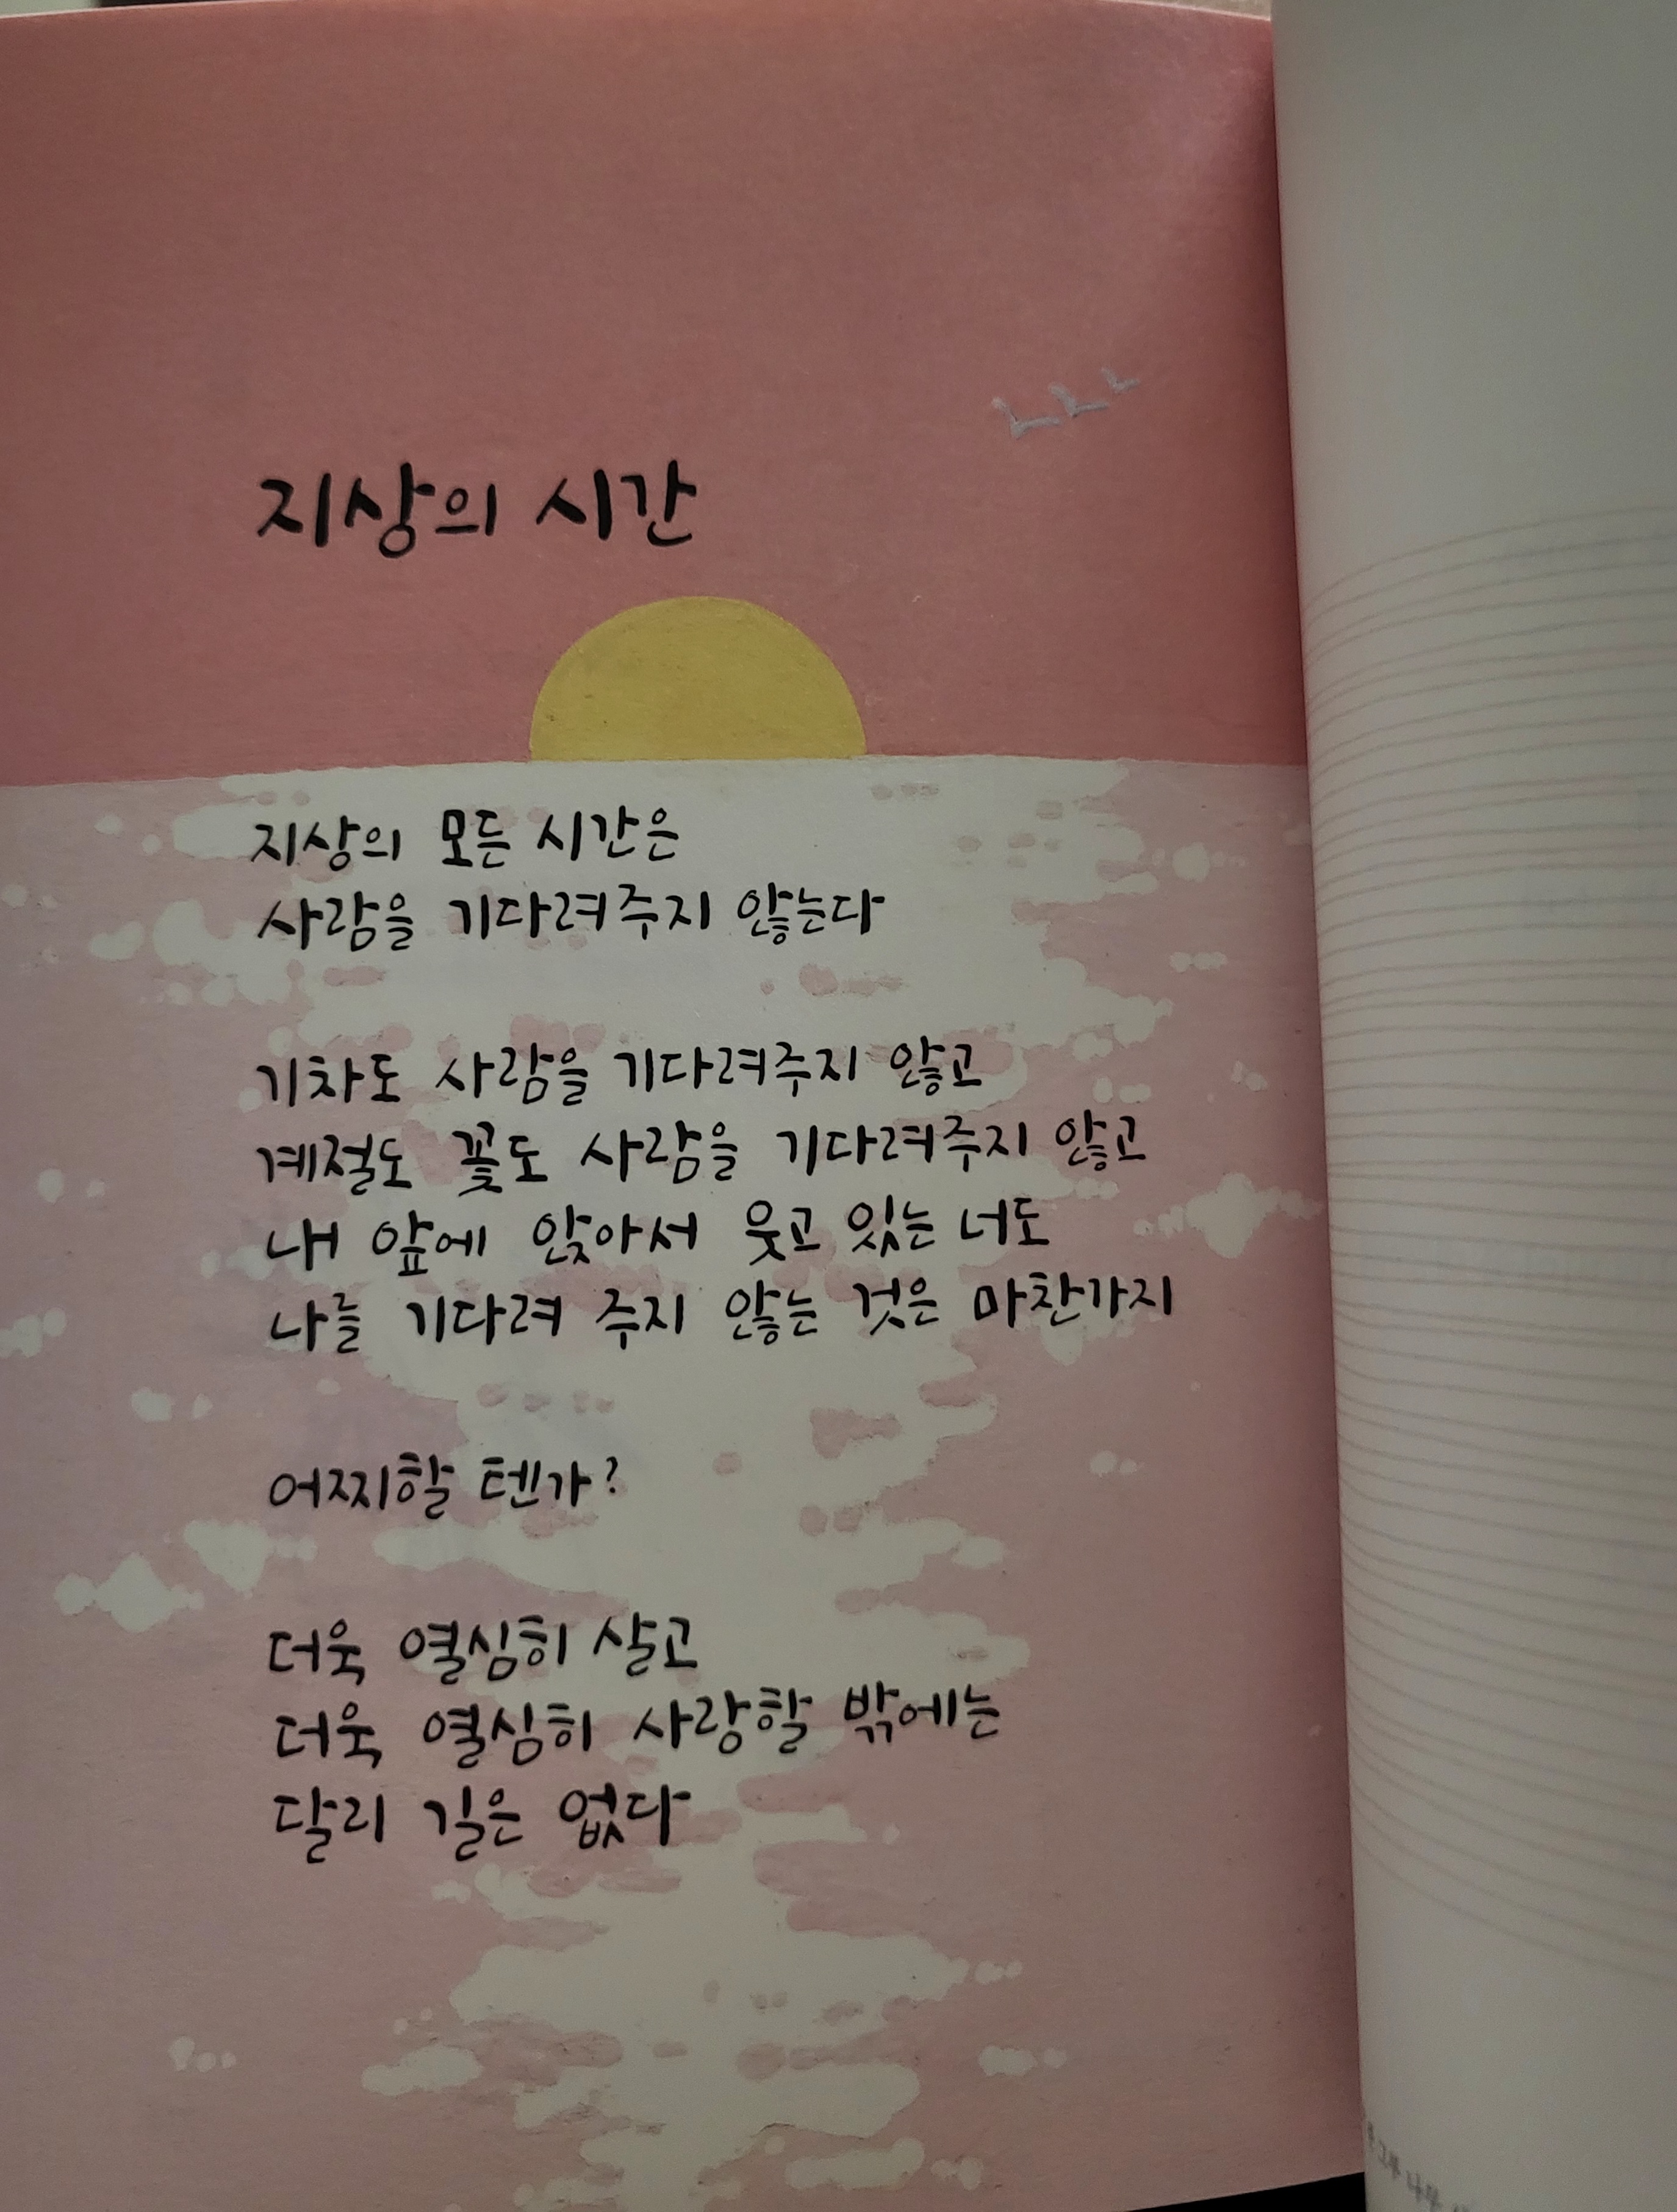 지상의 시간
지상의 모든 시간은
사람을 기다려주지 않는다
기차도 사람을 기다려주지 않고
계절도 꽃도 사람을 기다려주지 않고
내 앞에 앉아서 웃고 있는 너도
나를 기다려 주지 않는 것은 마찬가지
어찌할 텐가?
더욱 열심히 살고
더욱 열심히 사랑할 밖에는
달리 길은 없다